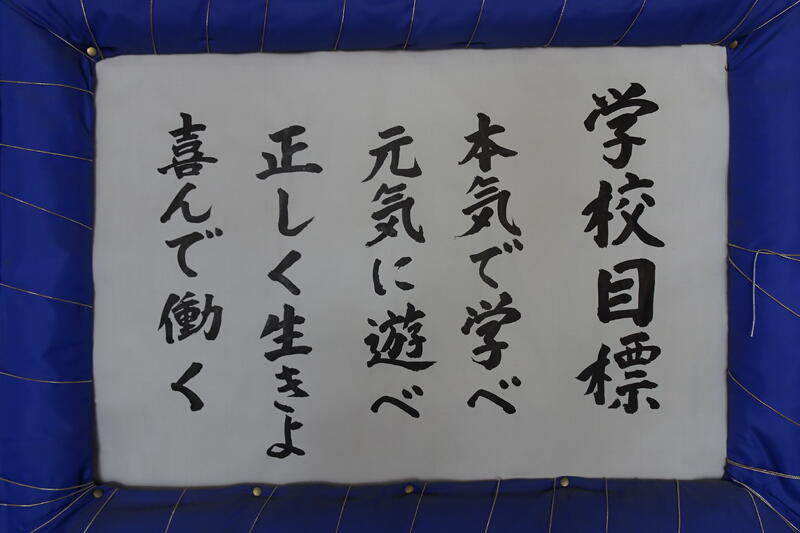 学校目標
本気で学べ
元気に遊べ
正しく生きよ
喜んで働く